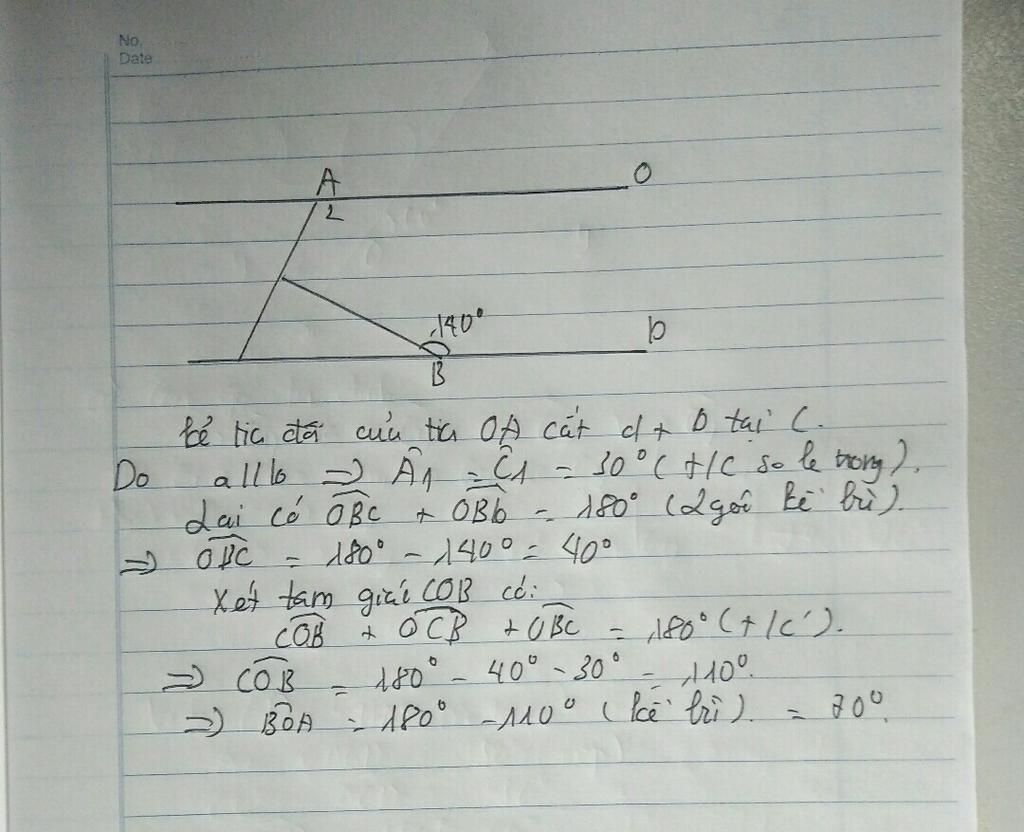 No.
Date
A
O
2
140°
b
B
kẻ tia đối của tia OA cắt đt b tại C.
Do a//b ⇒ Â1 = Ĉ1 = 30° (t/c so le trong).
Lại có OBC + OBb = 180° (2 góc kề bù).
⇒ OBC = 180° - 140° = 40°
Xét tam giác COB có:
COB + OCB + OBC = 180° (t/c).
⇒ COB = 180° - 40° - 30° = 110°.
⇒ BOA = 180° - 110° (kề bù). = 70°.